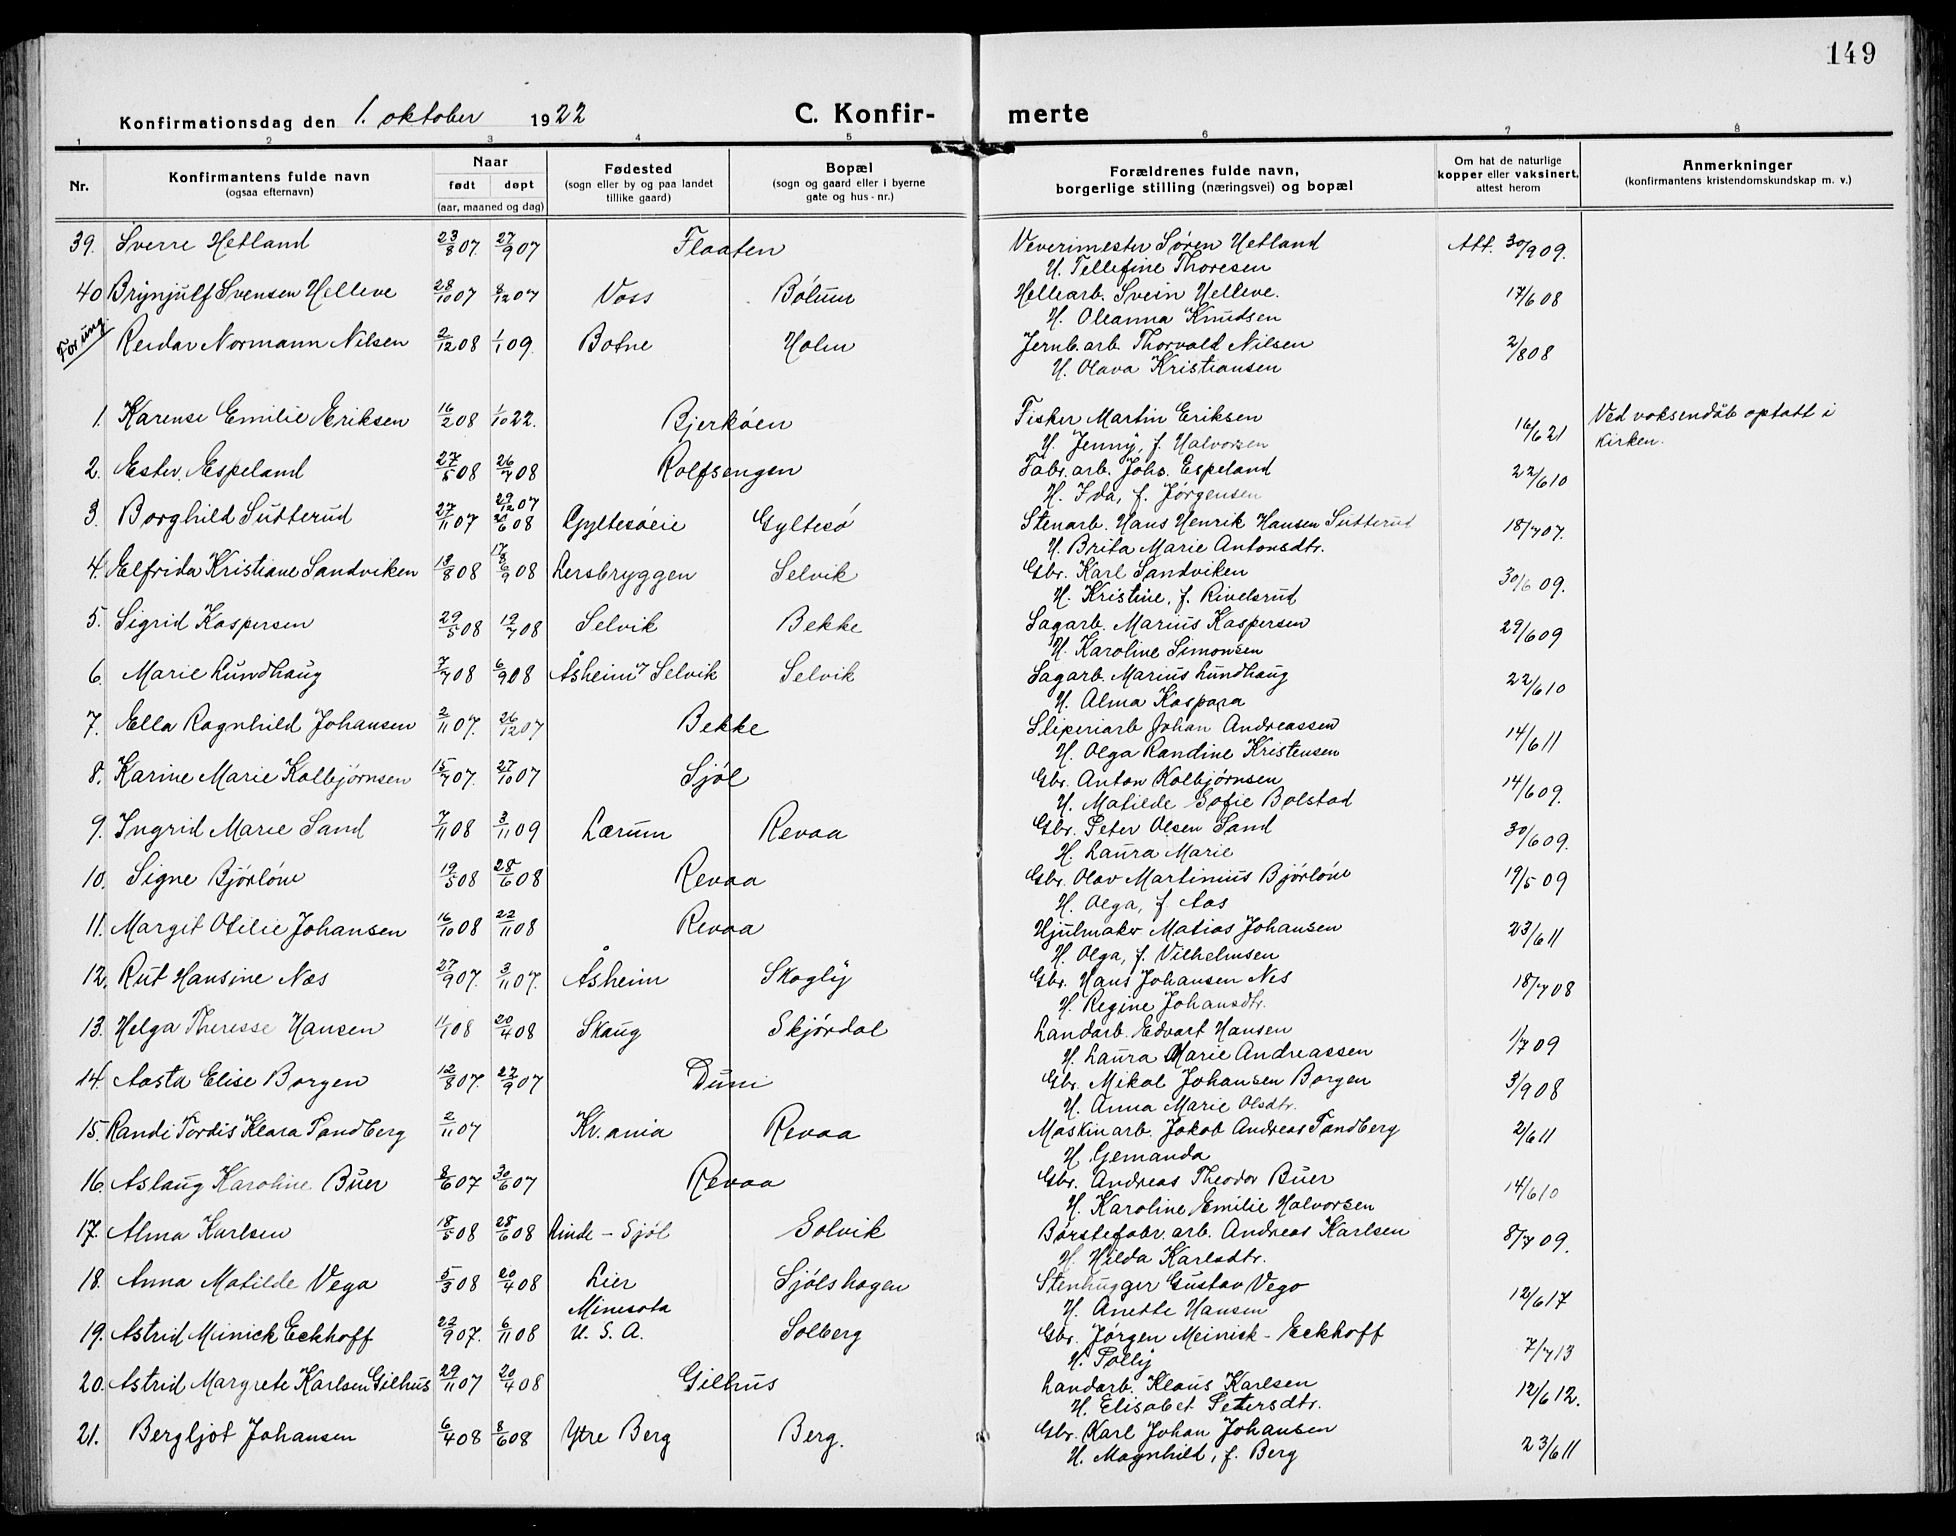 149
Konfirmationsdag den 1. oktober 1922 C. Konfir- merte
1 2 3 4 5 6 7 8
Nr. Konfirmantens fulde navn (ogsaa efternavn) Naar født døpt (aar, maaned og dag) Fødested (sogn eller by og paa landet tillike gaard) Bopæl (sogn og gaard eller i byerne gate og hus-nr.) Forældrenes fulde navn, borgerlige stilling (næringsvei) og bopæl Om hat de naturlige kopper eller vaksinert, attest herom Anmerkninger (konfirmantens kristendomskundskap m. v.)
39. Sverre Hetland 23/8 07. 27/9 07 Flaaten Veverimester Søren Hetland Att. 30/9 09.
H. Tellefine Thoresen
40 Brynjulf Svensen Helleve 28/10 07 8/12 07 Voss Bolum Hellearb. Svein Helleve. 17/6 08
H. Oleanna Knudsen
For ung. Reidar Normann Nilsen 2/12 08 1/1 09. Botne Holm Jernb.arb. Thorvald Nilsen 2/8 08
H. Olava Kristiansen
1. Karense Emilie Eriksen 16/2 08 1/10 22. Bjerkøen Fisker Martin Eriksen 16/6 21 Ved voksendåb optatt i
H. Jenny, f. Halvorsen kirken.
2. Ester Espeland 27/5 08 26/7 08 Rolfsengen Fabr.arb. Johs. Espeland 22/6 10
H. Ida, f. Jørgensen
3. Borghild Sutterud 27/11 07 29/12 07 21/6 08 Gyltesøeie Gyltesø Stenarb. Hans Henrik Hansen Sutterud 18/7 07.
H. Brita Marie Antonsdtr.
4. Elfrida Kristiane Sandviken 13/8 08 08 Lersbryggen Selvik Gbr. Karl Sandviken 30/6 09.
H. Kristine, f. Rivelsrud
5. Sigrid Kaspersen 29/5 08 19/7 08 Selvik Bekke Sagarb. Marius Kaspersen 29/6 09
H. Karoline Simonsen
6. Marie Lundhaug 7/7 08 6/9 08 Åsheim Selvik Selvik Sagarb. Marius Lundhaug 22/6 10
H. Alma Kaspara
7. Ella Ragnhild Johansen 2/11 07. 26/12 07 Bekke Sliperiarb Johan Andreassen 14/6 11
H. Olga Randine Kristensen
8. Karine Marie Kolbjørnsen 15/7 07. 27/10 07 Sjøl Gbr. Anton Kolbjørnsen 14/6 09.
H. Matilde Sofie Bolstad
9. Ingrid Marie Sand 7/11 08 3/11 09 Lærum Revaa Gbr. Peter Olsen Sand 30/6 09.
H. Laura Marie
10. Signe Bjørløw 19/5 08 28/6 08 Revaa Gbr. Olav Martinius Bjørløw 19/5 09
H. Olga, f. Aas
11. Margit Otilie Johansen 16/10 08 22/11 08 Revaa Hjulmaker Matias Johansen 23/6 11
H. Olga, f. Vilhelmsen
12. Rut Hansine Næs 27/9 07. 3/11 07. Åsheim Skogly Gbr. Hans Johansen Nes 18/7 08
H. Regine Johansdtr.
13. Helga Theresse Hansen 1/1 08 20/4 08 Skaug Skjørdal Landarb. Edvart Hansen 1/7 09
H. Laura Marie Andreassen
14. Aasta Elise Borgen 12/8 07. 22/9 07 Duni Gbr. Mikal Johansen Borgen 3/9 08
H. Anna Marie Olsdtr.
15. Randi Tordis Klara Sandberg 2/11 07 Kr.ania Revaa Maskinarb. Jakob Andreas Sandberg 2/6 11
H. Gemanda
16. Aslaug Karoline Buer 8/6 07 30/6 07 Revaa Gbr. Andreas Theodor Buer 14/6 10
H. Karoline Emilie Halvorsen
17. Alma Karlsen 18/5 08 28/6 08 Linde - Sjøl Solvik Børstefabr. arb. Andreas Karlsen 8/7 09.
H. Hilda Karlsdtr.
18. Anna Matilde Vego 5/3 08 20/4 08 Lier Sjølshagen Stenhugger Gustav Vego 12/6 17
H. Anette Hansen
19. Astrid Meinick Eckhoff 22/9 07. 6/11 08 Minesota U. S. A. Solberg Gbr. Jørgen Meinick - Eckhoff 7/7 13
H. Polly
20. Astrid Margrete Karlsen Gilhus 29/11 07 20/4 08 Gilhus Landarb. Klaus Karlsen 12/6 12.
H. Elisabet Petersdtr.
21. Bergljot Johansen 6/4 08 8/6 08 Ytre Berg Berg. Gbr. Karl Johan Johansen 23/6 11
H. Magnhild, f. Berg